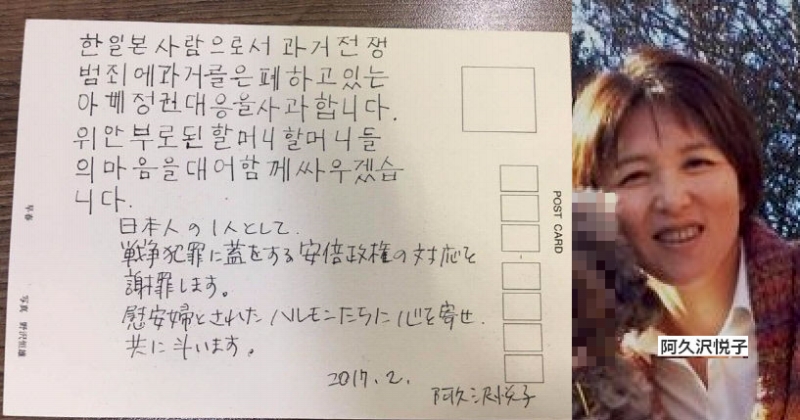 한일본사람으로서과거전쟁
범죄에과거를은폐하고있는
아베정권대응을사과합니다.
위안부로된할머니할머니들
의마음을대어함께싸우겠습
니다.
日本人の1人として、
戦争犯罪に蓋をする安倍政権の対応を
謝罪します。
慰安婦とされたハルモニたちに心を寄せ、
共に斗います。
2017.2.
阿久沢悦子
POST CARD
早春
阿久沢悦子